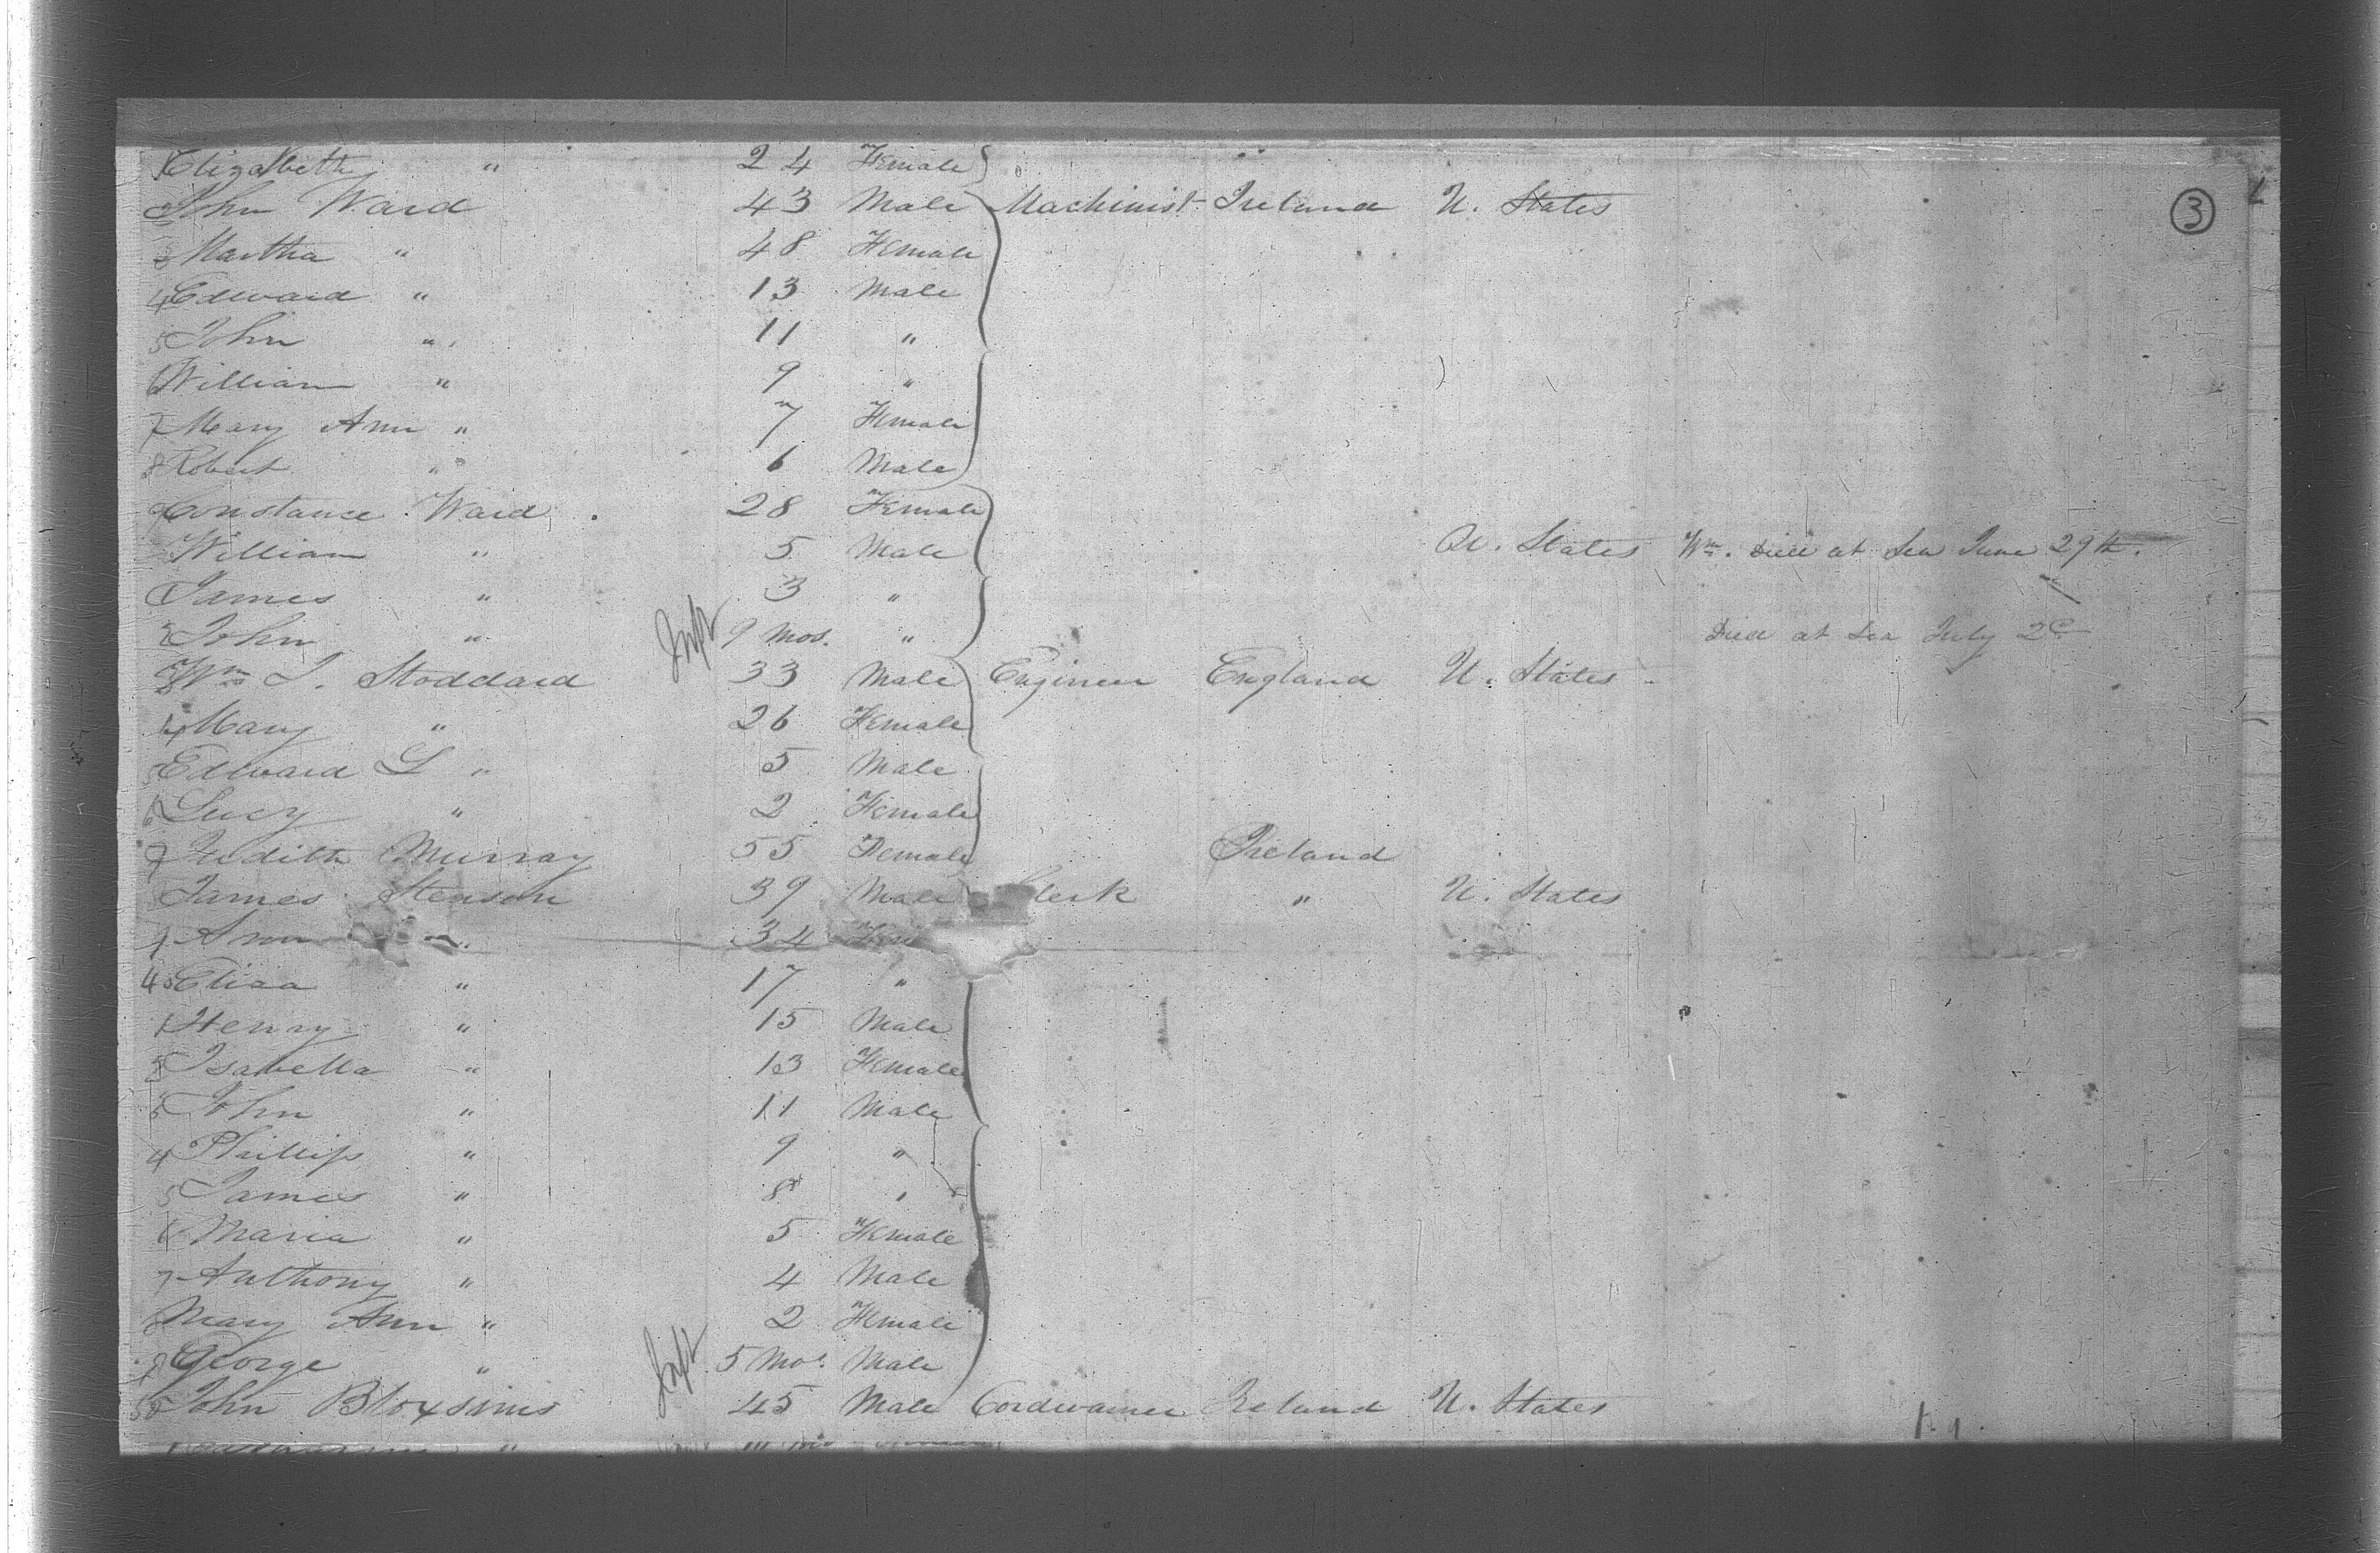 Elizabeth " 24 Female
2 John Ward 43 Male Machinist Ireland U. States
3 Martha " 48 Female
4 Edward " 13 Male
5 John " 11 "
6 William " 9 "
7 Mary Ann " 7 Female
8 Robert " 6 Male
9 Constance Ward 28 Female
William " 5 Male U. States Wm. Died at Sea June 29th.
James " 3 "
2 John " Inft 9 Mos. " Died at Sea July 2d
3 Wm J. Stoddard 33 Male Engineer England U. States
4 Mary " 26 Female
5 Edward L " 5 Male
6 Lucy " 2 Female
7 Judith Murray 55 Female Ireland
James Stenson 39 Male Clerk " U. States
9 Ann " 34 Fem
40 Eliza " 17 "
1 Henry " 15 Male
2 Isabella " 13 Female
3 John " 11 Male
4 Phillip " 9 "
5 James " 8 "
6 Maria " 5 Female
7 Anthony " 4 Male
8 Mary Ann " 2 Female
9 George " Inft 5 Mos. Male
50 John Bloxsims 45 Male Cordwainer Ireland U. States
3